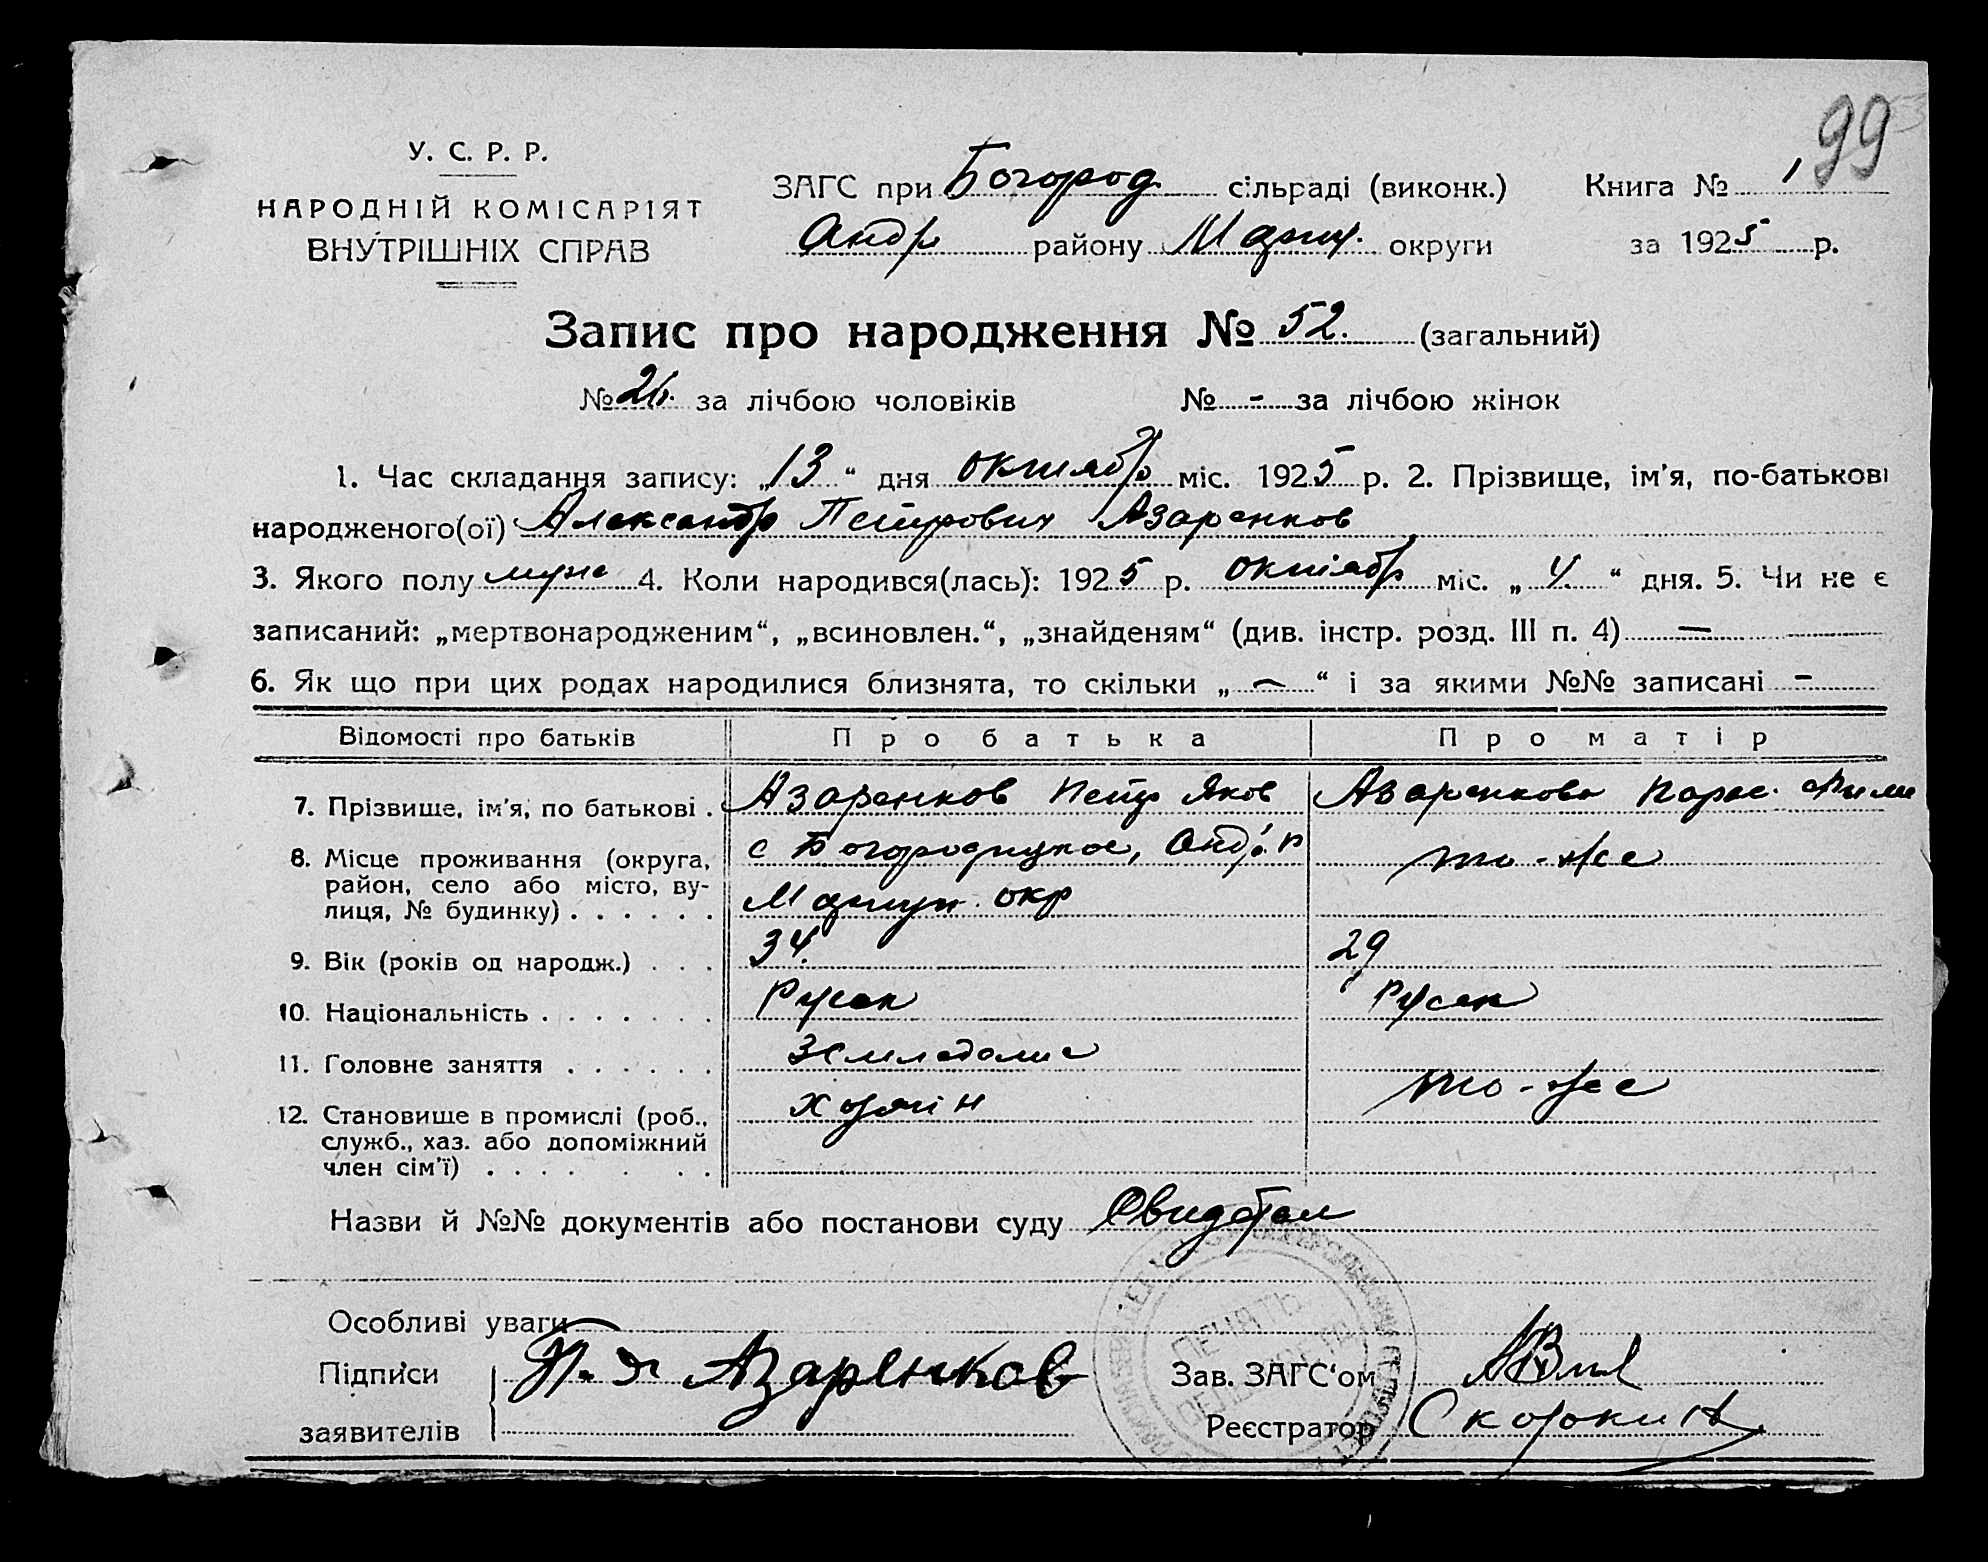 99
У. С. Р. Р.
НАРОДНІЙ КОМІСАРІЯТ
ВНУТРІШНІХ СПРАВ
ЗАГС при Богород. сільраді (виконк.) Книга № 1
Андр району округи за 1925 р.
Запис про народження № 52. (загальний)
№ 26. за лічбою чоловіків № - за лічбою жінок
1. Час складання запису: „13“ дня октиабр міс. 1925 р. 2. Прізвище, ім'я, по-батькові
народженого(ої) Александр Петрович Азаренков
3. Якого полу муже 4. Коли народився(лась): 1925 р. октіабр міс. „4.“ дня. 5. Чи не є
записаний: „мертвонародженим“, „всиновлен.“, „знайденям“ (див. інстр. розд. III п. 4) —
6. Як що при цих родах народилися близнята, то скільки „—“ і за якими №№ записані -
Відомості про батьків Про батька Про матір
7. Прізвище, ім'я, по батькові . Азаренков Петр Яков Азаренкова Парас.
8. Місце проживання (округа, с Богородицкое, Андр. р то-же
район, село або місто, ву-
лиця, № будинку) . . . . . . окр
9. Вік (років од народж.) . . . 34. 29
10. Національність . . . . . . . Русск Русск
11. Головне заняття . . . . . . Земледелие
12. Становище в промислі (роб., то-же
служб., хаз. або допоміжний
член сім'ї) . . . . . . .
Назви й №№ документів або постанови суду
Особливі уваги
Підписи П. Я Азаренков Зав. ЗАГС'ом
заявителів Реєстратор Скорокин
ПЕЧАТЬ